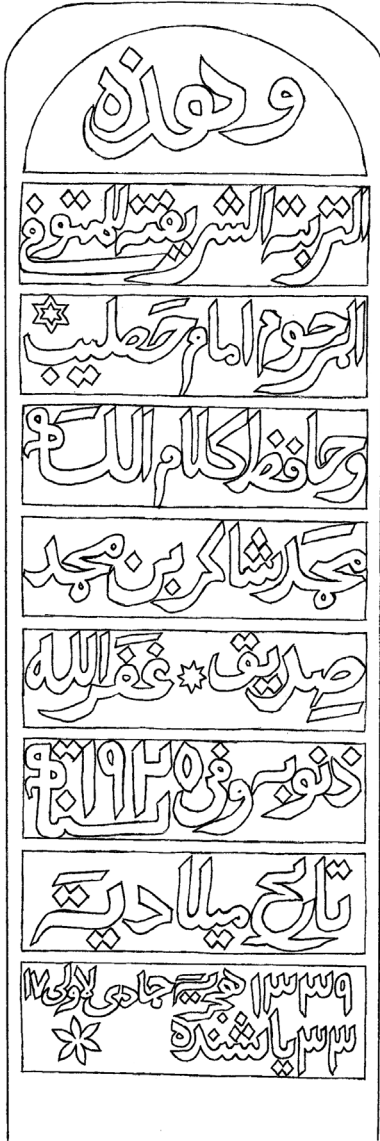 وهذه
التربة الشريفة للمتوفى
المرحوم امام خطيب
وحافظ كلام الله
محمد شاكر بن محمد
صديق غفر الله
ذنوبه وفى ١٩٢٥ سنة
تاريخ ميلادية
١٣٣٩ هجرية جمادى لاولى ١٧
٣٣ ياشنده